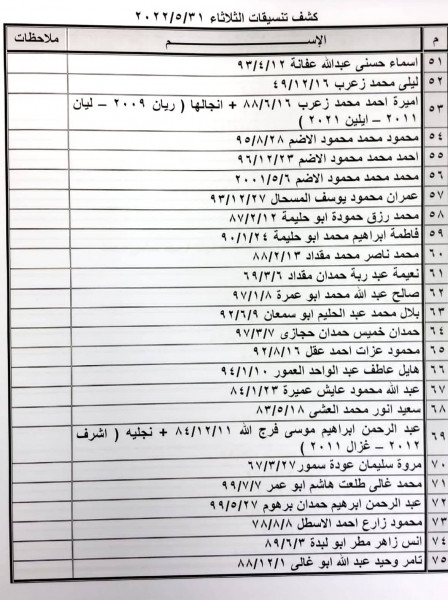 كشف تنسيقات الثلاثاء ٢٠٢٢/٥/٣١
م الإســـم ملاحظات
٥١ اسماء حسنى عبدالله عفانة ٩٣/٤/١٢
٥٢ ليلى محمد زعرب ٤٩/١٢/١٦
٥٣ اميرة احمد محمد زعرب ٨٨/٦/١٦ + انجالها ( ريان ٢٠٠٩ – ليان
٢٠١١ – ايلين ٢٠٢١ )
٥٤ محمود محمد محمود الاضم ٩٥/٨/٢٨
٥٥ احمد محمد محمود الاضم ٩٦/١٢/٢٣
٥٦ محمد محمد محمود الاضم ٢٠٠١/٥/٦
٥٧ عمران محمود يوسف المسحال ٩٣/١٢/٢٧
٥٨ محمد رزق حمودة ابو حليمة ٨٧/٢/١٢
٥٩ فاطمة ابراهيم محمد ابو حليمة ٩٠/١/٢٤
٦٠ محمد ناصر محمد مقداد ٨٨/٢/١٣
٦١ نعيمة عبد ربة حمدان مقداد ٦٩/٣/٦
٦٢ صالح عبد الله محمد ابو عمرة ٩٧/١/٨
٦٣ بلال محمد عبد الحليم ابو سمعان ٩٢/٦/٩
٦٤ حمدان خميس حمدان حجازى ٩٧/٣/٧
٦٥ محمود عزات احمد عقل ٩٢/٨/١٦
٦٦ هايل عاطف عبد الواحد العمور ٩٤/١/١٠
٦٧ عبد الله محمود عايش عميرة ٨٤/١/٢٣
٦٨ سعيد انور محمد العشى ٨٣/٥/١٨
٦٩ عبد الرحمن ابراهيم موسى فرج الله ٨٤/١٢/١١ + نجليه ( اشرف
٢٠١٢ – غزال ٢٠١١ )
٧٠ مروة سليمان عودة سمور ٦٧/٣/٢٧
٧١ محمد غالى طلعت هاشم ابو عمر ٩٩/٧/٧
٧٢ عبد الرحمن ابرهيم حمدان برهوم ٩٩/٥/٢٧
٧٣ محمود زارع احمد الاسطل ٧٨/٨/٨
٧٤ انس زاهر مطر ابو لبدة ٨٩/٦/٣
٧٥ تامر وحيد عبد الله ابو غالى ٨٨/١٢/١